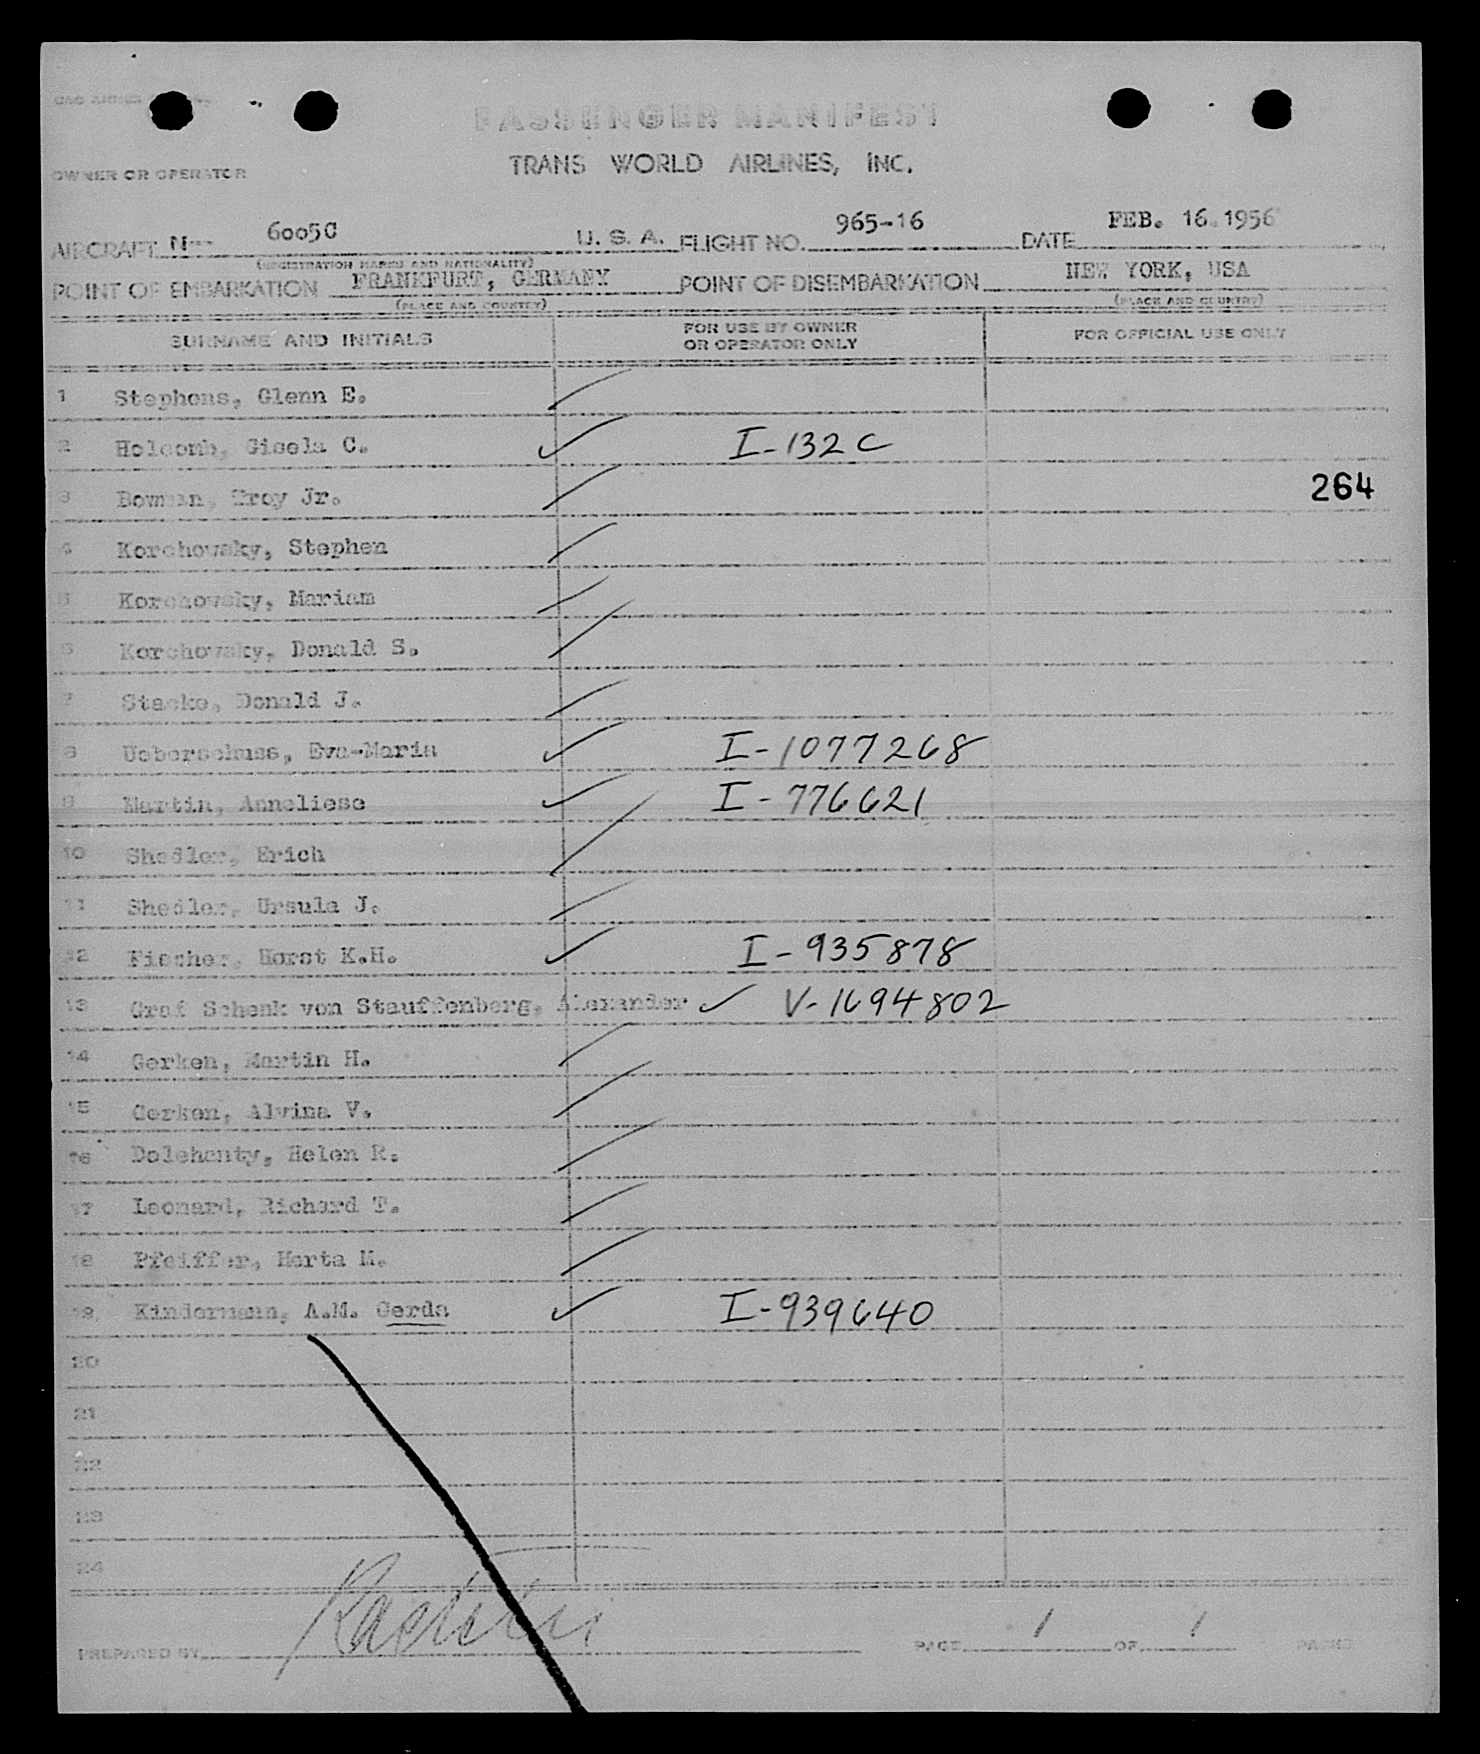 PASSENGER MANIFEST
OWNER OR OPERATOR TRANS WORLD AIRLINES, INC.
AIRCRAFT N--- 6005C U. S. A. FLIGHT NO. 965-16 DATE FEB. 16.1956
(REGISTRATION MARKS AND NATIONALITY)
POINT OF EMBARKATION FRANKFURT, GERMANY POINT OF DISEMBARKATION NEW YORK, USA
(PLACE AND COUNTRY) (PLACE AND COUNTRY)
SURNAME AND INITIALS FOR USE BY OWNER OR OPERATOR ONLY FOR OFFICIAL USE ONLY
1 Stephens, Glenn E.
2 Holcomb, Gisela C. I-132 C
3 Bowman, Troy Jr. 264
4 Korchowsky, Stephen
5 Korchowsky, Mariam
6 Korchowsky, Donald S.
7 Stacke, Donald J.
8 Ueberschuss, Eva-Maria I-1077268
9 Martin, Anneliese I-776621
10 Shedler, Erich
11 Shedler, Ursula J.
12 Fischer, Horst K.H. I-935878
13 Graf Schenk von Stauffenberg, Alexander V-1694802
14 Gerken, Martin H.
15 Gerken, Alvina V.
16 Dolehanty, Helen R.
17 Leonard, Richard T.
18 Pfeiffer, Herta M.
19 Kindermann, A.M. Gerda I-939640
20
21
22
23
24
PREPARED BY PAGE 1 OF 1 PAGES